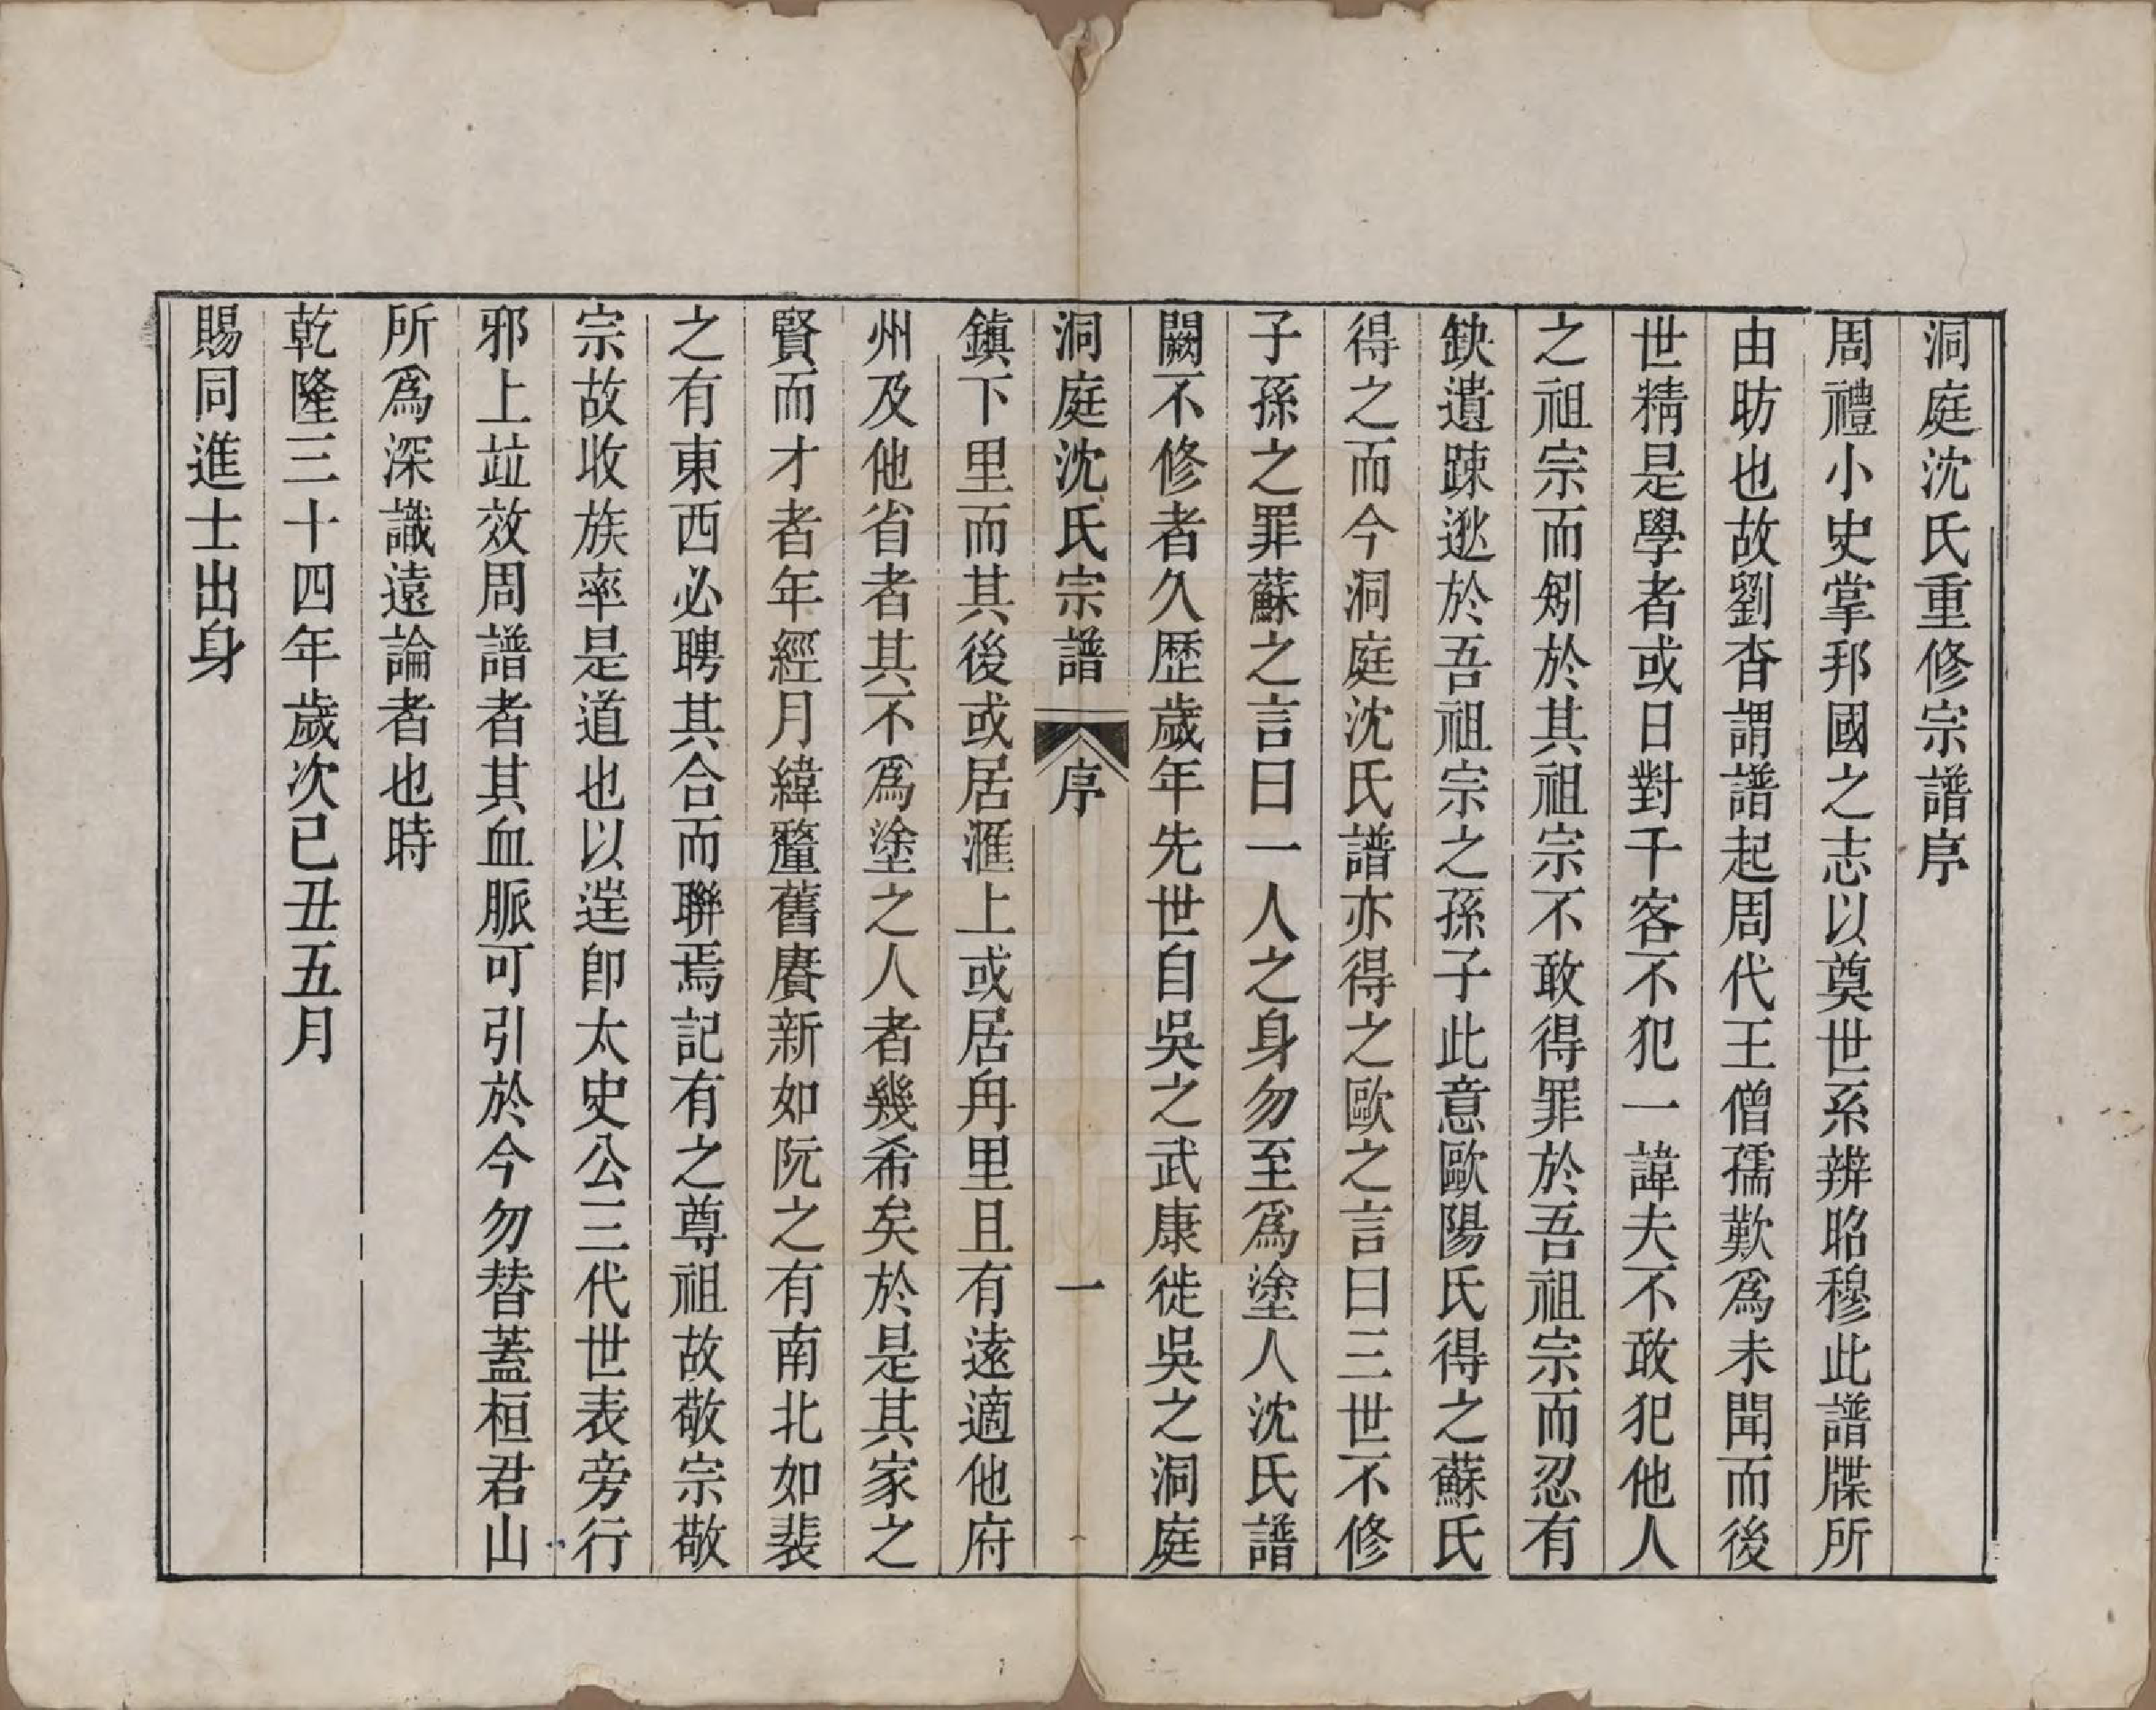 洞庭沈氏重修宗譜序
周禮小史掌邦國之志以奠世系辨昭穆此譜牒所
由昉也故劉杳謂譜起周代王僧孺歎爲未聞而後
世精是學者或日對千客不犯一諱夫不敢犯他人
之祖宗而矧於其祖宗不敢得罪於吾祖宗而忍有
缺遺踈逖於吾祖宗之孫子此意歐陽氏得之蘇氏
得之而今洞庭沈氏譜亦得之歐之言曰三世不修
子孫之罪蘇之言曰一人之身勿至爲塗人沈氏譜
闕不修者久歷歲年先世自吳之武康徙吳之洞庭
洞庭沈氏宗譜 序 一
鎮下里而其後或居滙上或居舟里且有遠適他府
州及他省者其不爲塗之人者幾希矣於是其家之
賢而才者年經月緯釐舊賡新如阮之有南北如裴
之有東西必聘其合而聯焉記有之尊祖故敬宗敬
宗故收族率是道也以逞卽太史公三代世表旁行
邪上竝效周譜者其血脈可引於今勿替蓋桓君山
所爲深識遠論者也時
乾隆三十四年歲次己丑五月
賜同進士出身